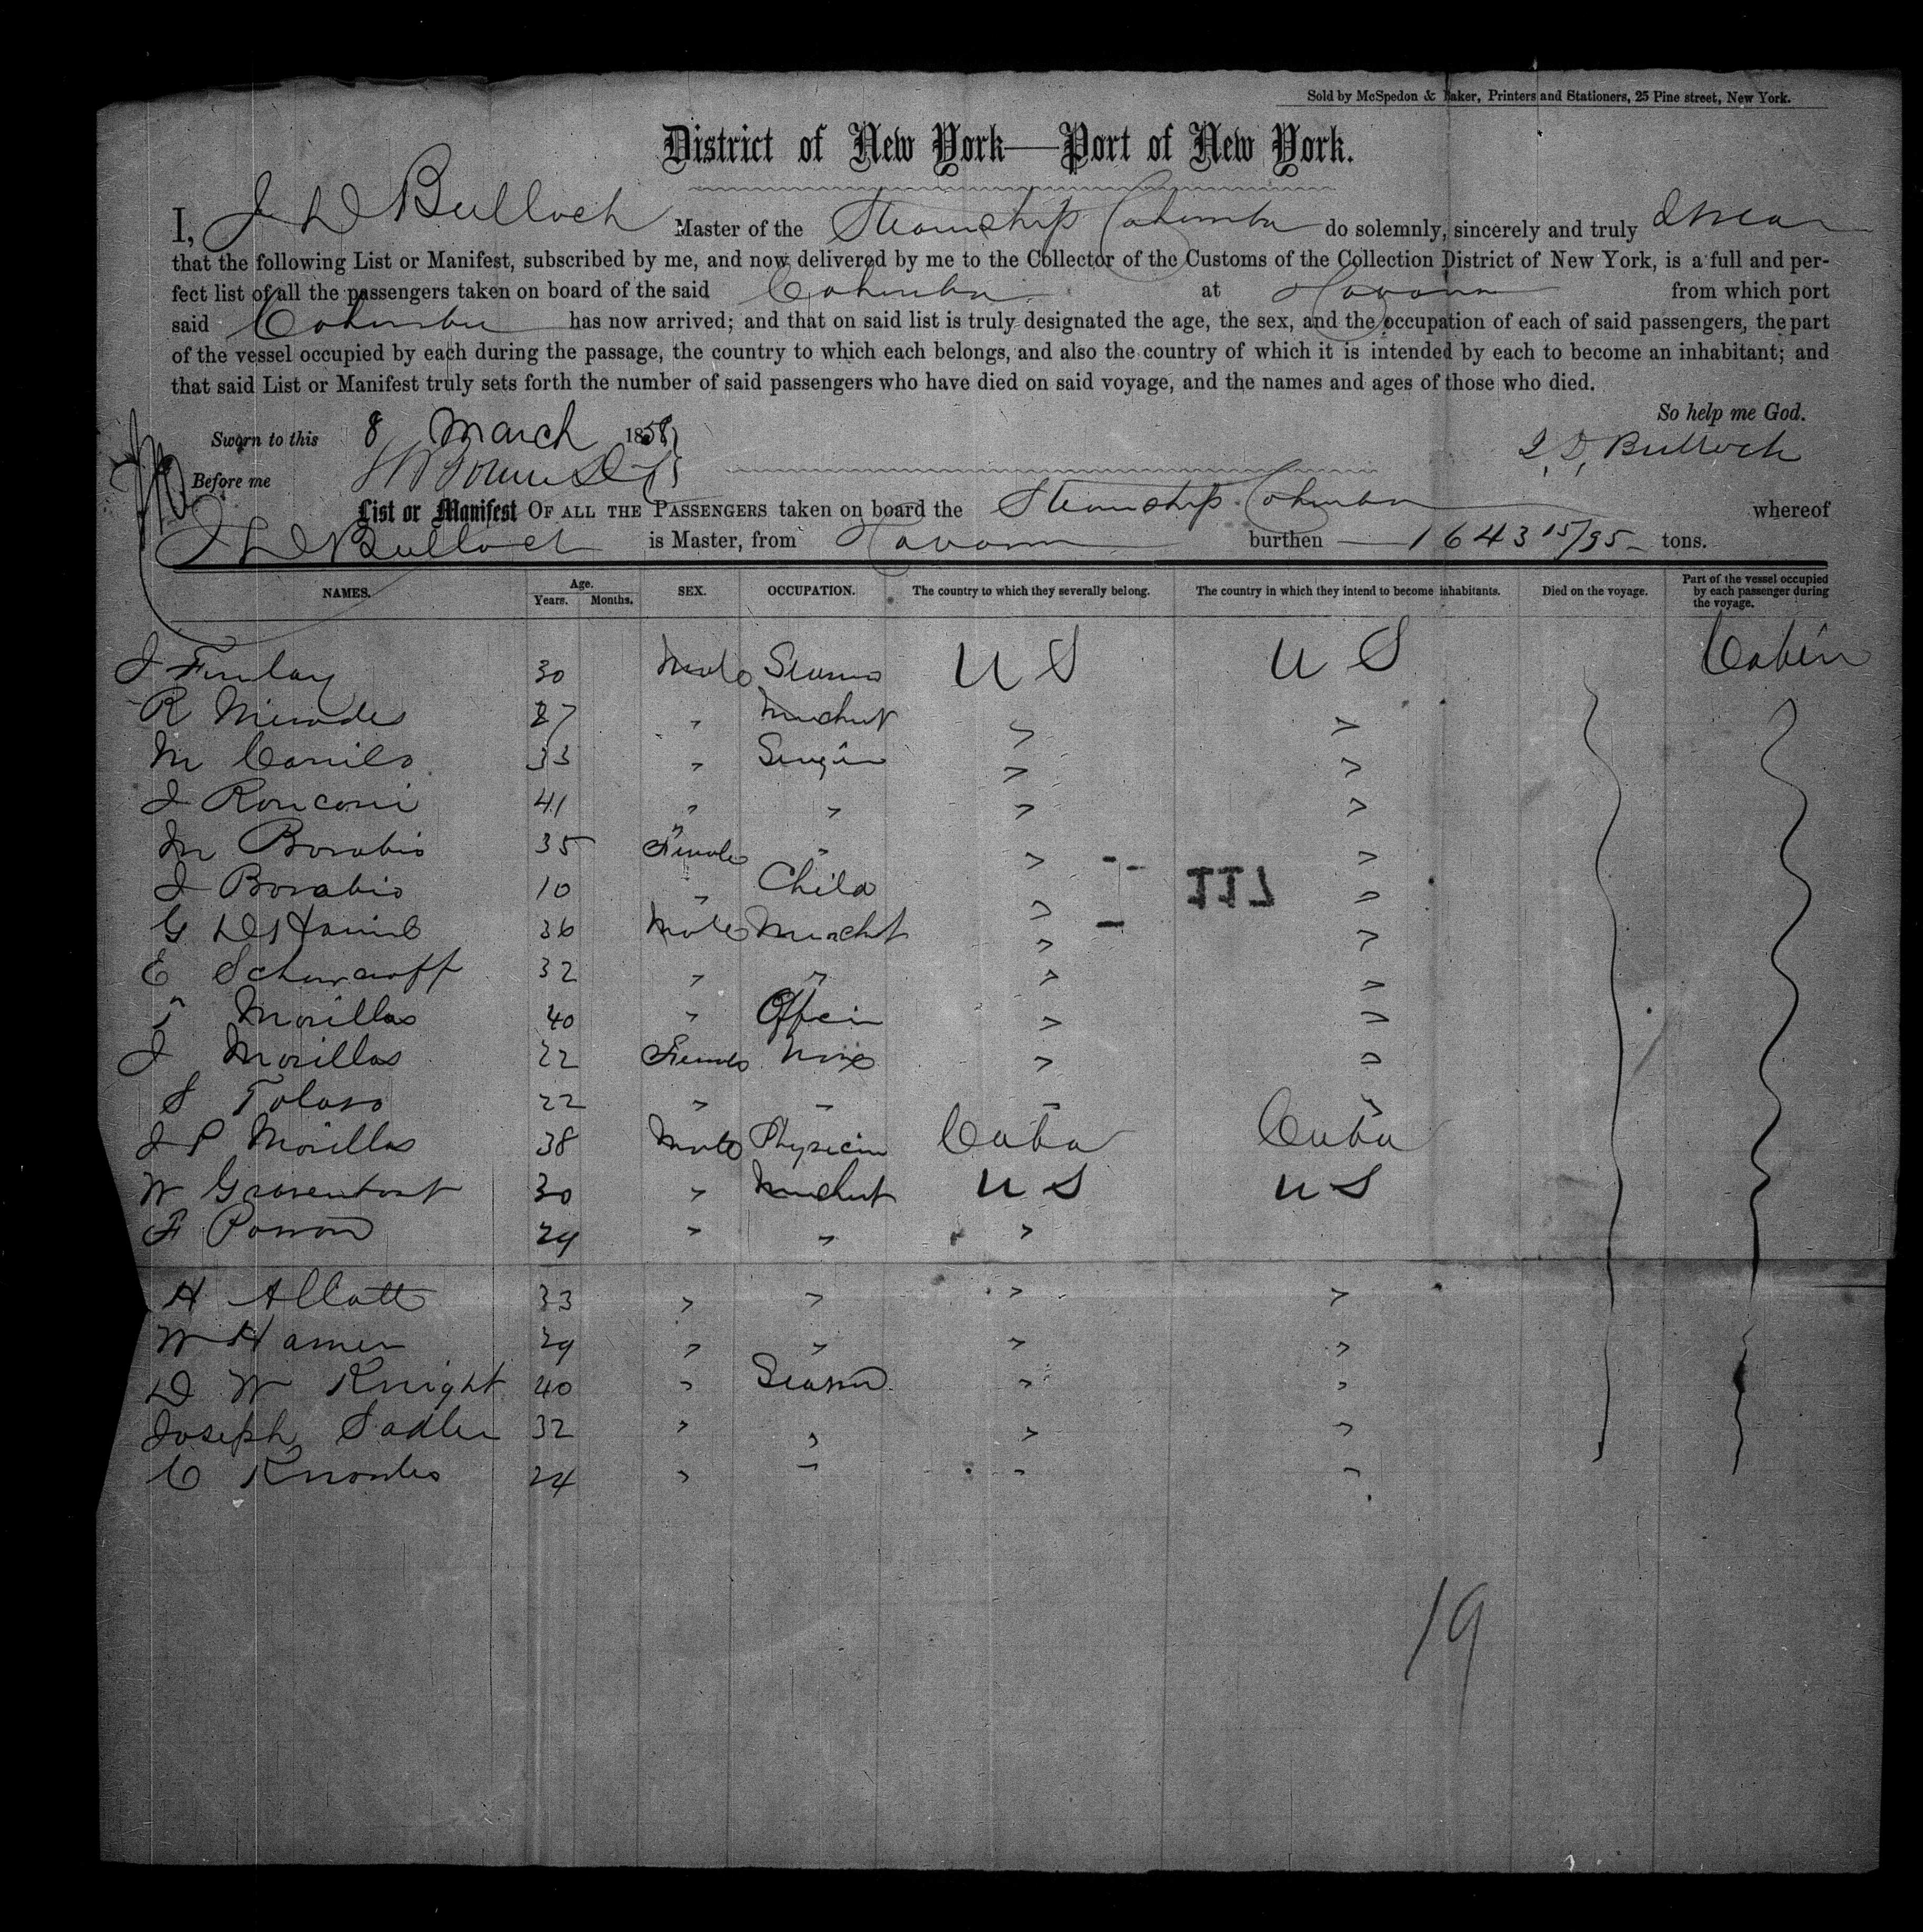 Sold by McSpedon & Baker, Printers and Stationers, 25 Pine street, New York.
District of New York—Port of New York.
I, J D Bulloch Master of the Steamship Columbia do solemnly, sincerely and truly swear
that the following List or Manifest, subscribed by me, and now delivered by me to the Collector of the Customs of the Collection District of New York, is a full and per-
fect list of all the passengers taken on board of the said Columbia at Havana from which port
said Columbia has now arrived; and that on said list is truly designated the age, the sex, and the occupation of each of said passengers, the part
of the vessel occupied by each during the passage, the country to which each belongs, and also the country of which it is intended by each to become an inhabitant; and
that said List or Manifest truly sets forth the number of said passengers who have died on said voyage, and the names and ages of those who died.
So help me God.
Sworn to this 8 March 1858
J. D. Bulloch
Before me
List or Manifest OF ALL THE PASSENGERS taken on board the Steamship Columbia whereof
J D Bulloch is Master, from Havana burthen 1643 15/95 tons.
NAMES. Age. Years. Months. SEX. OCCUPATION. The country to which they severally belong. The country in which they intend to become inhabitants. Died on the voyage. Part of the vessel occupied by each passenger during the voyage.
J Finlay 30 Male U S U S Cabin
R 27 " Merchant " "
M 33 " " "
J Ronconi 41 " " " "
M Borabio 35 Female " " "
J Borabio 10 " Child " "
117
G 36 Male Mercht " "
E 32 " " " "
Morillas 40 " " "
J Morillas 22 Female None " "
S 22 " " " "
J P Morillas 38 Male Physician Cuba Cuba
W 30 " Merchant U S U S
F 29 " " "
H 33 " " " "
W Hamer 29 " " " "
D W Knight 40 " Seaman " "
Joseph Sadler 32 " " " "
C Knowles 24 " " " "
19